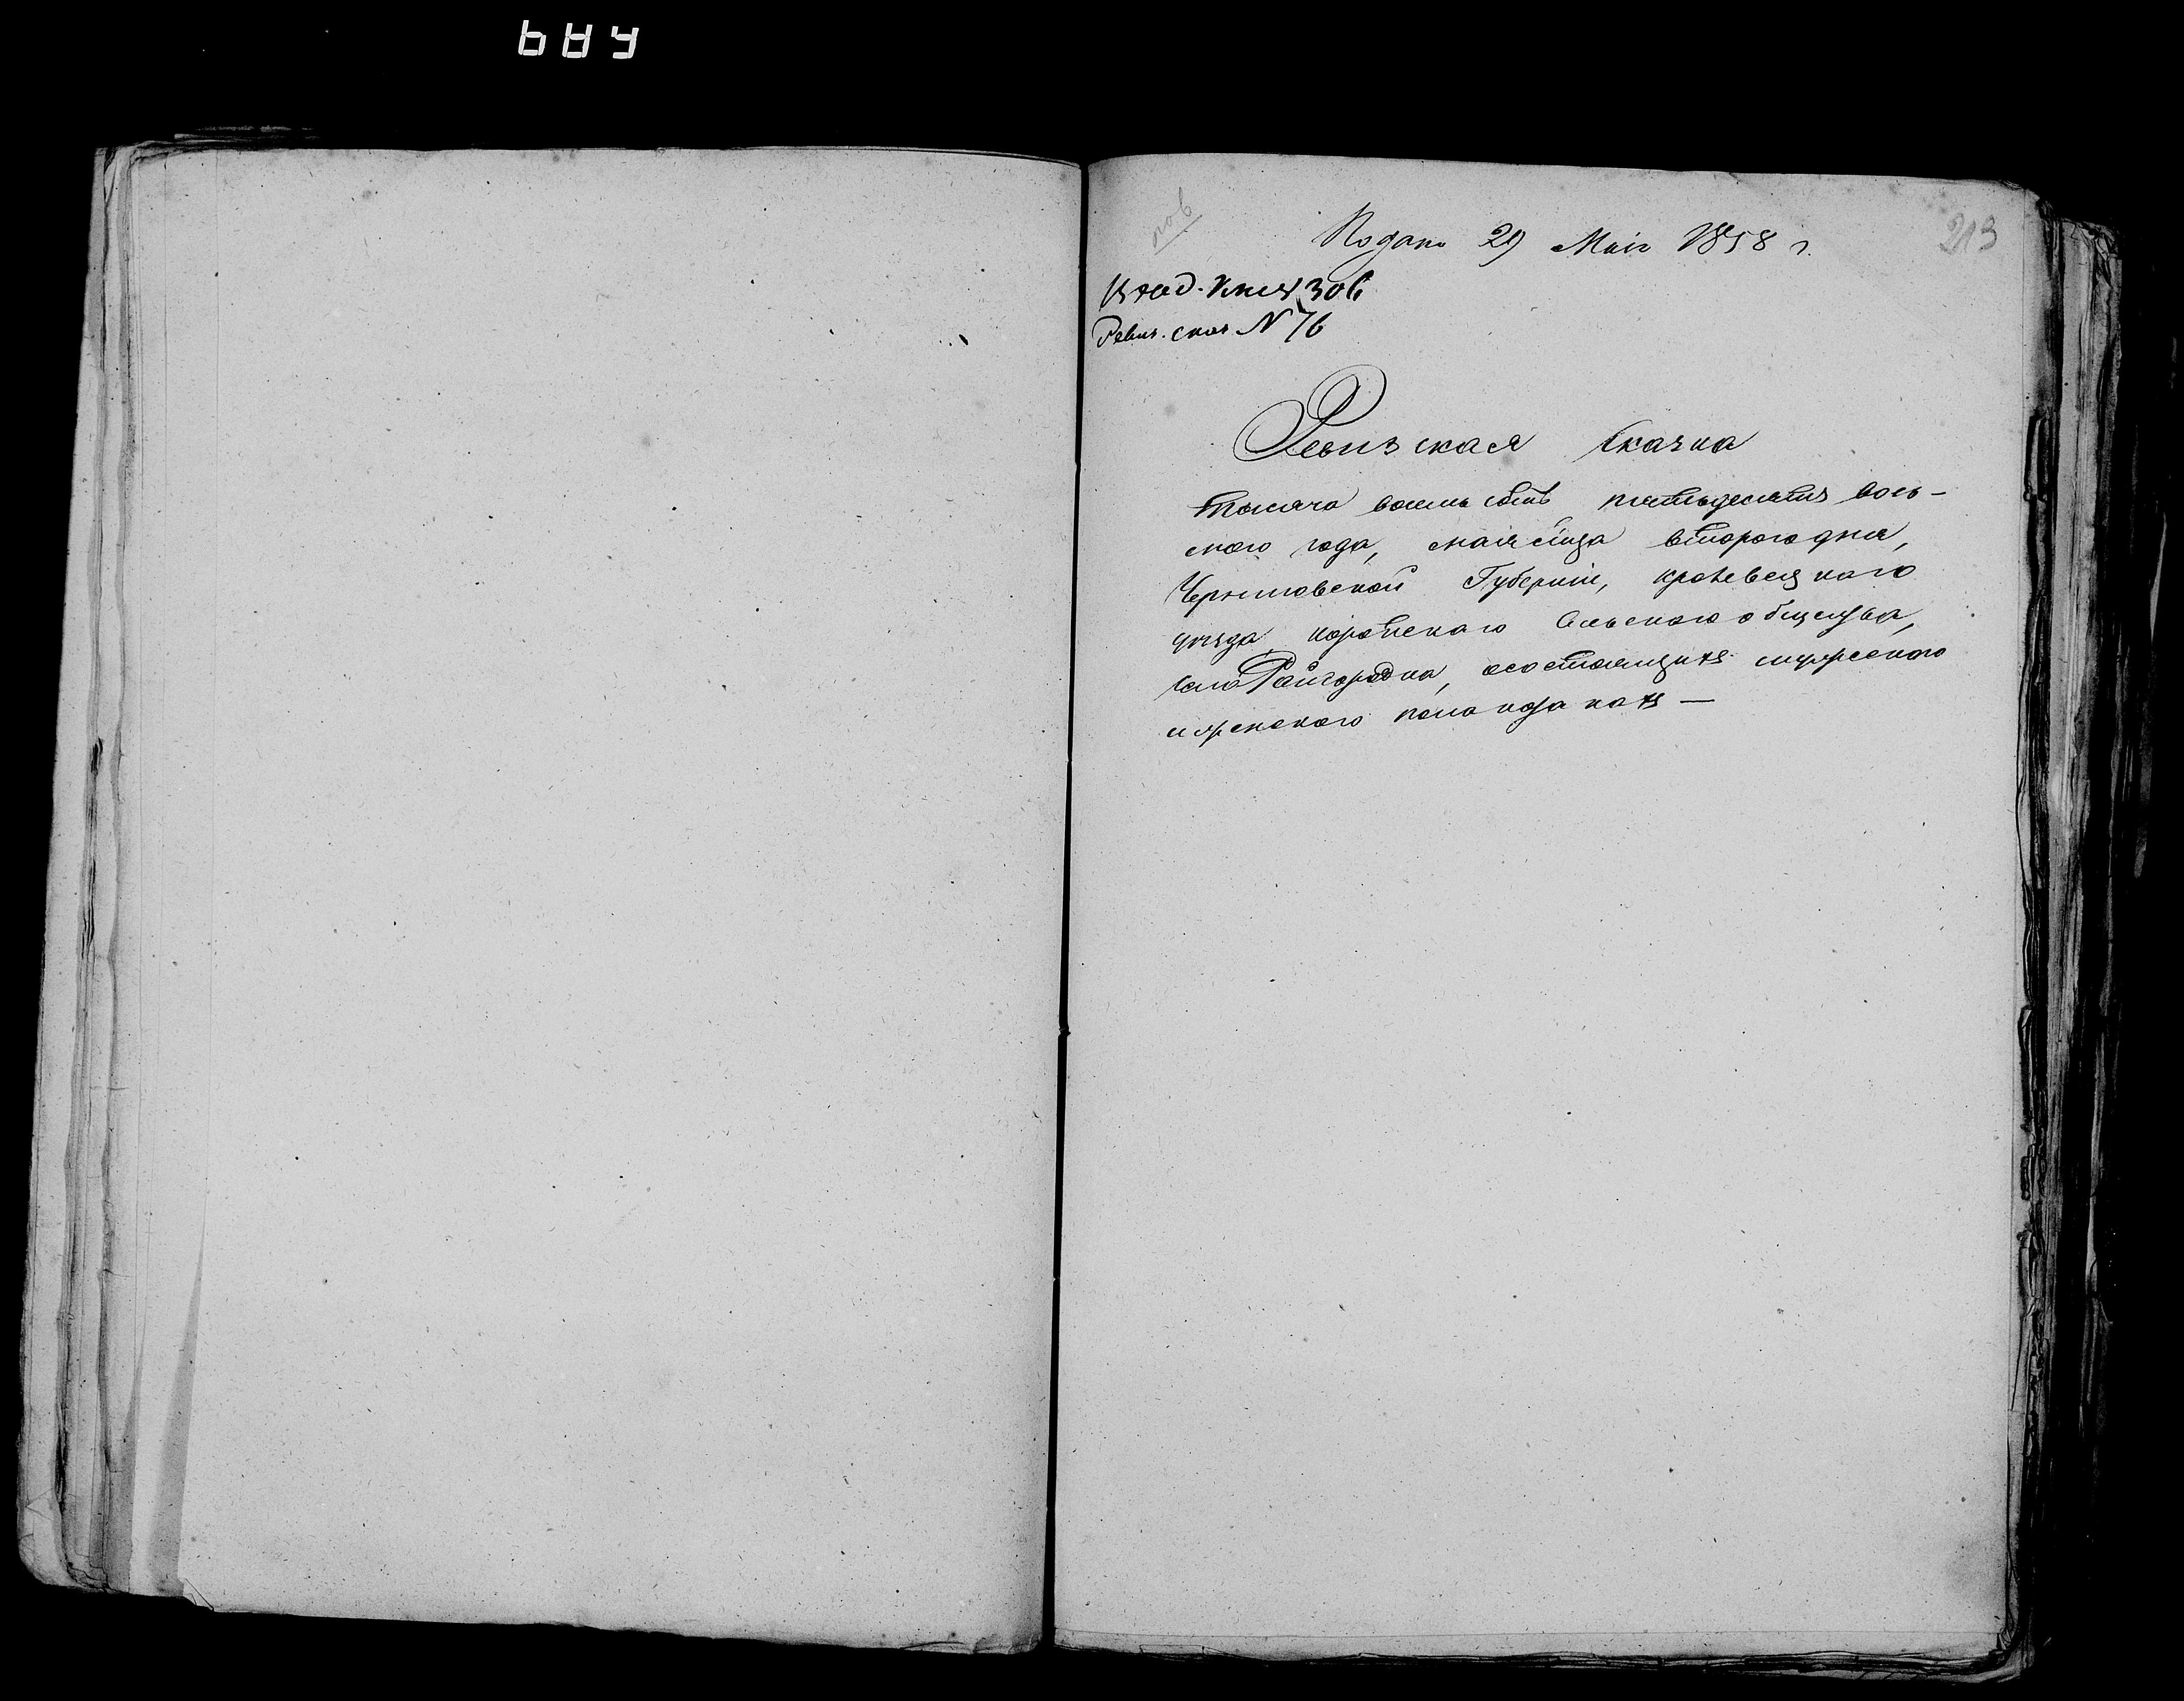 Подано 29 Маія 1858 г.
213
Вход. книг 306
Ревиз. сказ N 76
Ревизская Сказка
тысяча восемь сотъ пятьдесятъ вось-
мого года, маія мѣсяца второго дня,
Черниговской Губерніи, Кролевецкаго
уѣзда Коропскаго Сельского общества,
села Райгородка, о состоящихъ мужеского
и женского пола козакахъ —